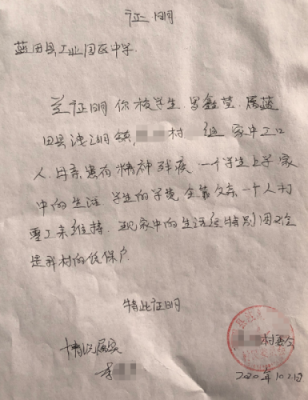 证明
蓝田县工业园区中学:
兹证明你校学生 鑫莹,属蓝
田县 镇 村 组,家中 口
人,母亲患有精神残疾,一个学生上学,家
中的生活 学生的学费全靠父亲一个人打
零工来维持,现家中的生活 特别困
是我村的低保户
特此证明
情况属实
李
村委会
2020年10.